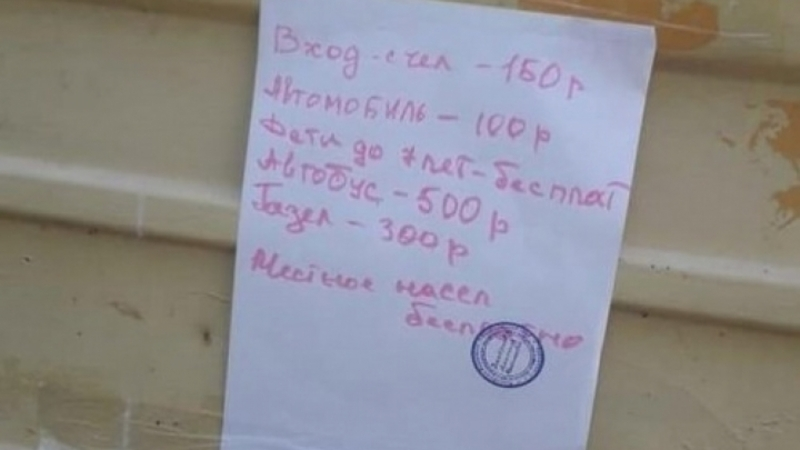 Вход - с чел - 150 р
Автомобиль - 100 р
Дети до 7 лет - бесплат
Автобус - 500 р
Газел - 300 р
Местное насел
бесплатно